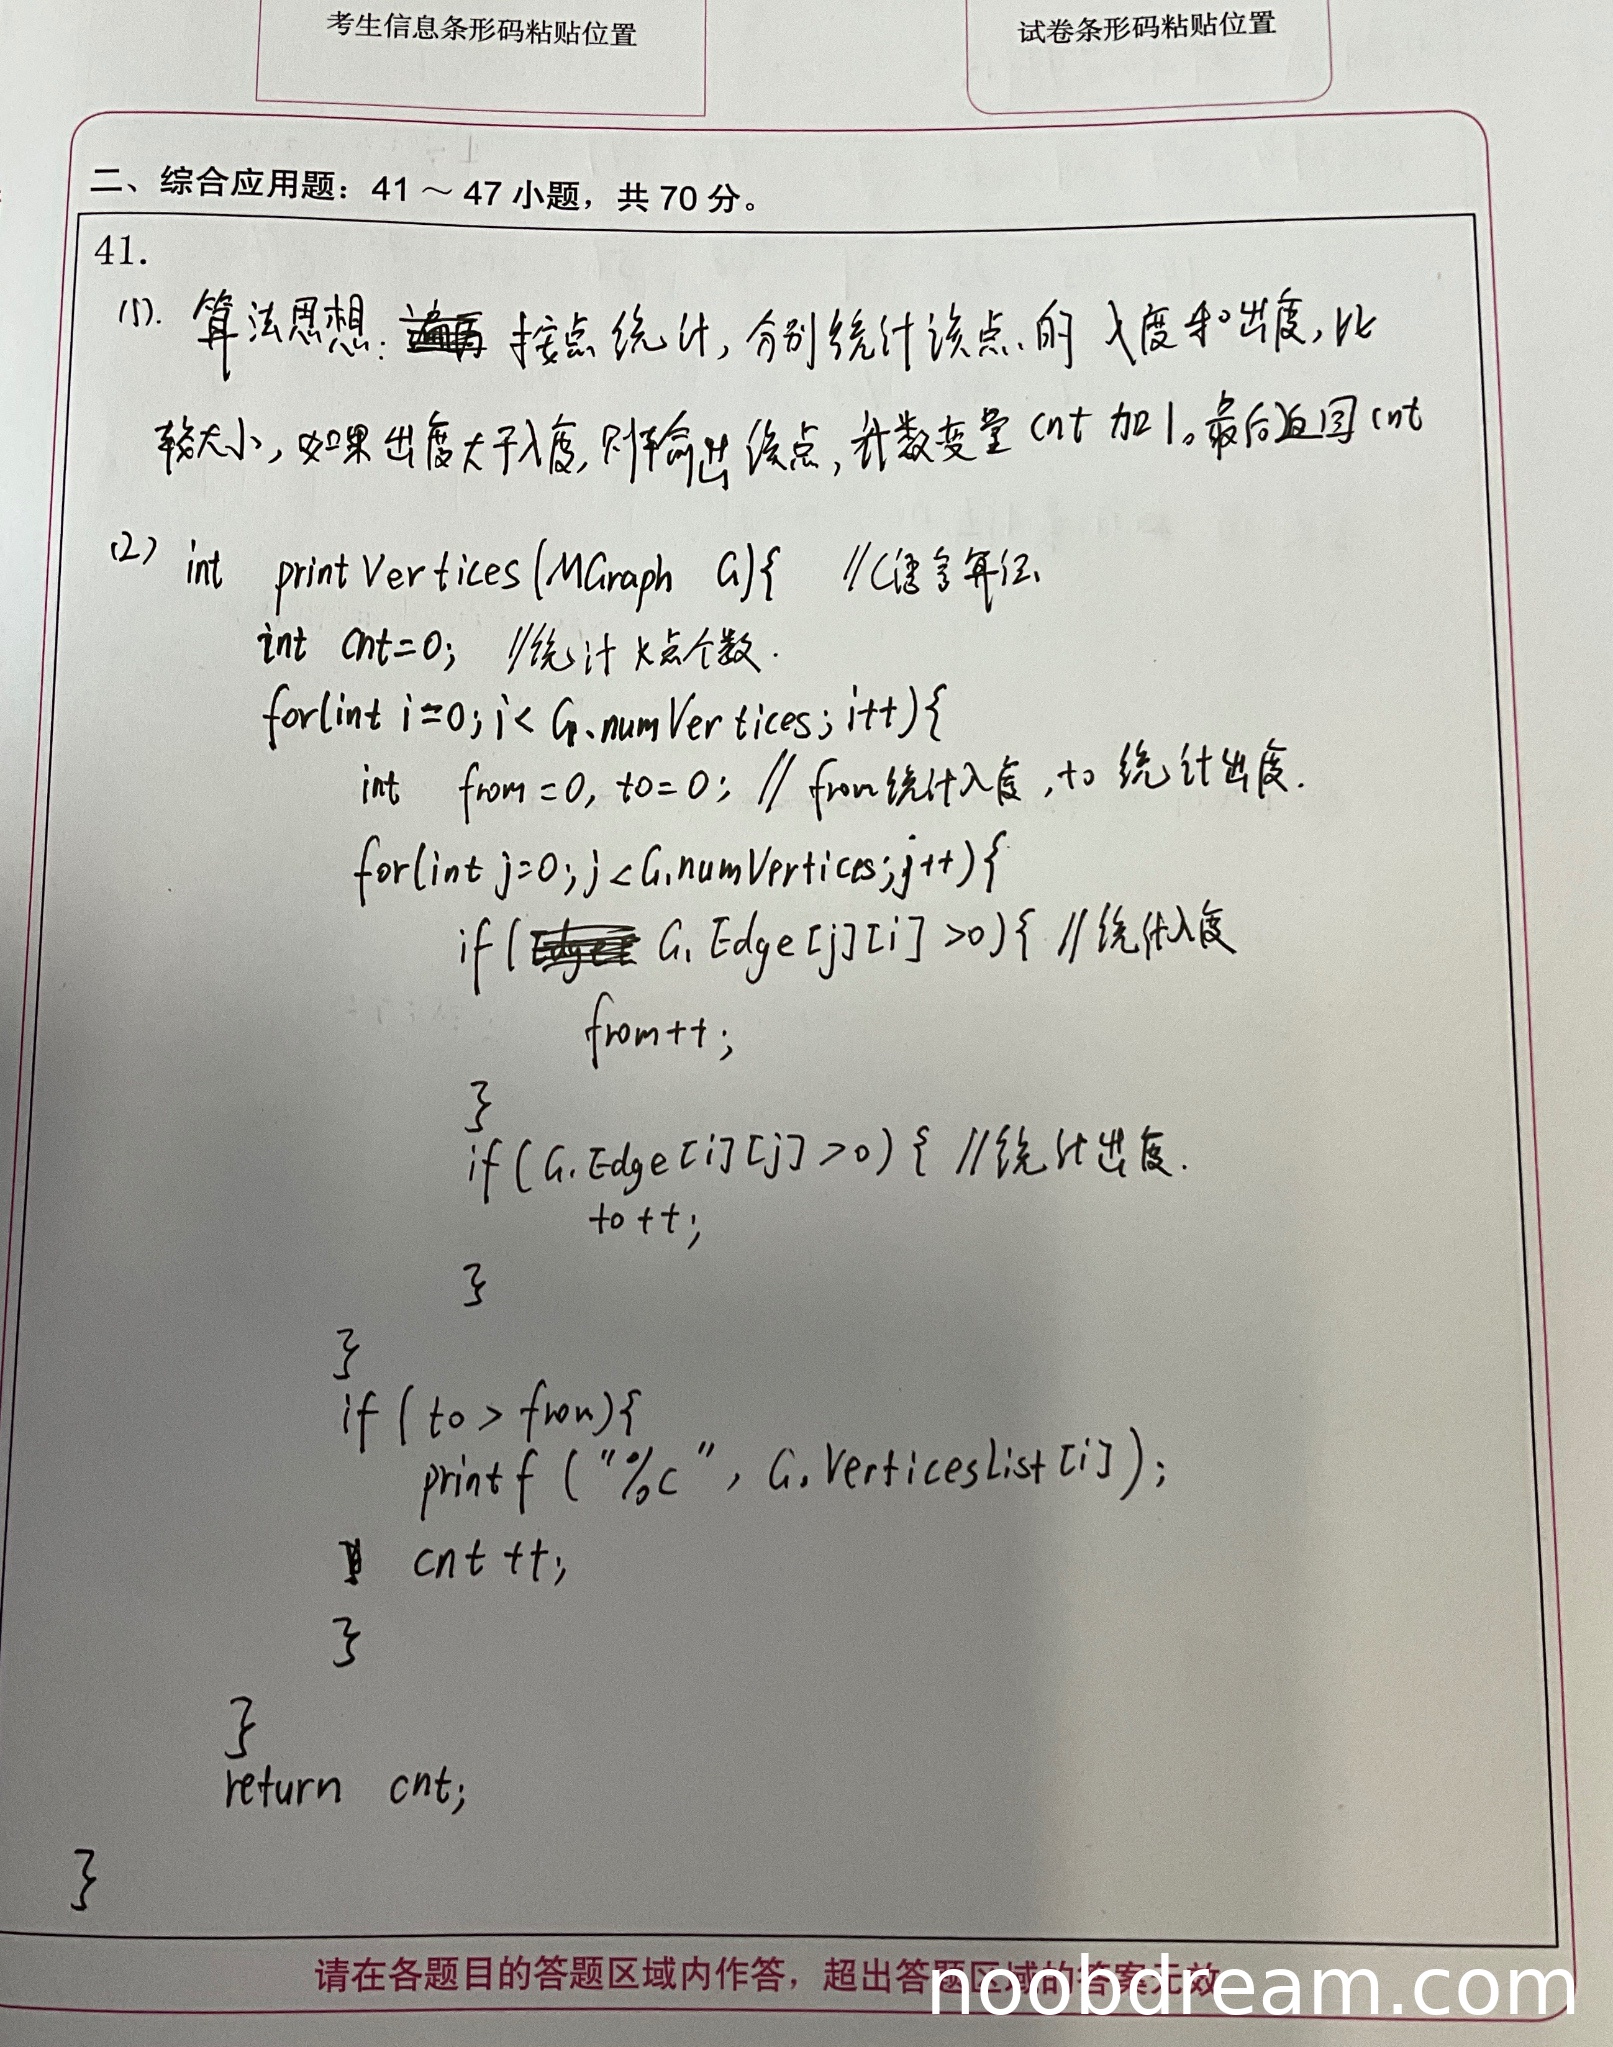 考生信息条形码粘贴位置
试卷条形码粘贴位置
二、综合应用题：41 ～ 47 小题，共 70 分。
41.
(1). 算法思想: 按点统计, 分别统计该点的 入度和出度, 比
较大小, 如果出度大于入度, 则输出该点, 计数变量 cnt 加1。最后返回 cnt
(2) int printVertices(MGraph G){ //C语言算法
int cnt=0; //统计K点个数.
for(int i=0; i< G.numVertices; i++){
int from=0, to=0; // from统计入度, to 统计出度.
for(int j=0; j<G.numVertices; j++){
if( G.Edge[j][i] >0){ //统计入度
from++;
}
if(G.Edge[i][j]>0) { //统计出度.
to++;
}
}
if(to> from){
printf("%c", G.VerticesList[i]);
cnt++;
}
}
return cnt;
}
请在各题目的答题区域内作答，超出答题区域的答案无效
noobdream.com